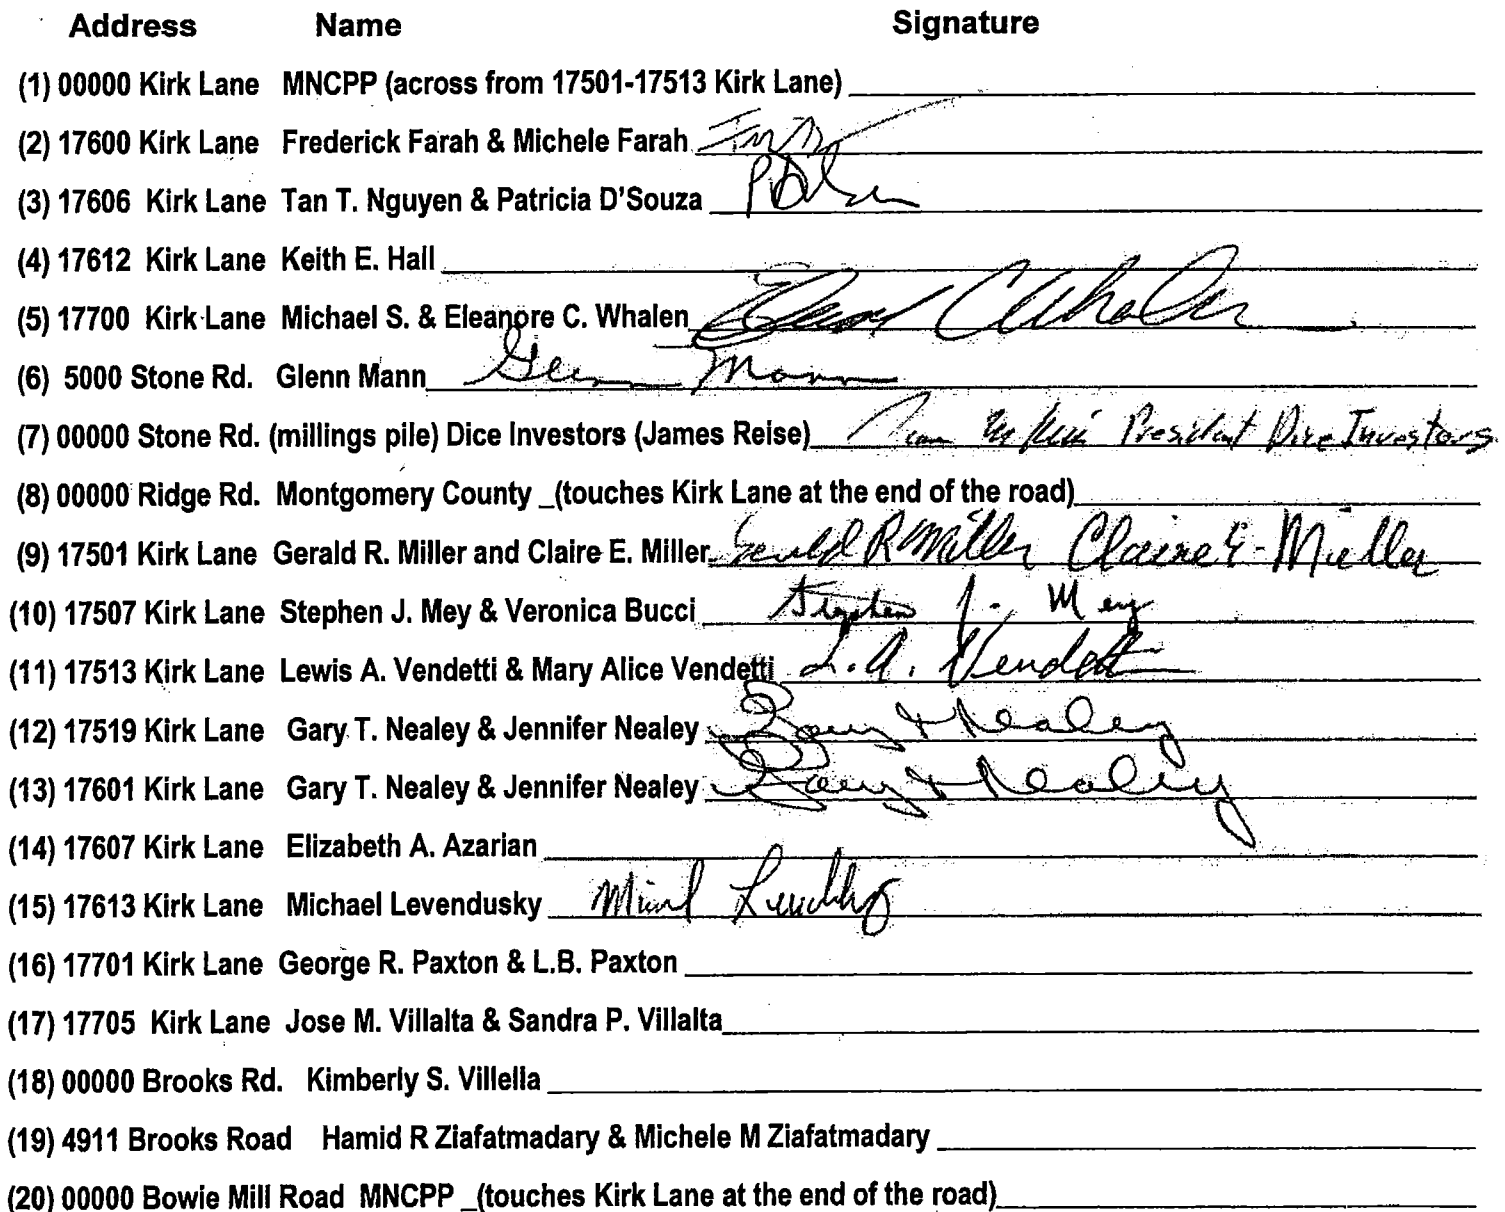 Address Name Signature
(1) 00000 Kirk Lane MNCPP (across from 17501-17513 Kirk Lane)
(2) 17600 Kirk Lane Frederick Farah & Michele Farah
(3) 17606 Kirk Lane Tan T. Nguyen & Patricia D'Souza
(4) 17612 Kirk Lane Keith E. Hall
(5) 17700 Kirk Lane Michael S. & Eleanore C. Whalen C Whalen
(6) 5000 Stone Rd. Glenn Mann Glenn Mann
(7) 00000 Stone Rd. (millings pile) Dice Investors (James Reise) President Dice Investors
(8) 00000 Ridge Rd. Montgomery County _(touches Kirk Lane at the end of the road)
(9) 17501 Kirk Lane Gerald R. Miller and Claire E. Miller Gerald R Miller Claire E. Miller
(10) 17507 Kirk Lane Stephen J. Mey & Veronica Bucci Stephen J. Mey
(11) 17513 Kirk Lane Lewis A. Vendetti & Mary Alice Vendetti L.A. Vendetti
(12) 17519 Kirk Lane Gary T. Nealey & Jennifer Nealey Gary T Nealey
(13) 17601 Kirk Lane Gary T. Nealey & Jennifer Nealey Gary T Nealey
(14) 17607 Kirk Lane Elizabeth A. Azarian
(15) 17613 Kirk Lane Michael Levendusky
(16) 17701 Kirk Lane George R. Paxton & L.B. Paxton
(17) 17705 Kirk Lane Jose M. Villalta & Sandra P. Villalta
(18) 00000 Brooks Rd. Kimberly S. Villella
(19) 4911 Brooks Road Hamid R Ziafatmadary & Michele M Ziafatmadary
(20) 00000 Bowie Mill Road MNCPP _(touches Kirk Lane at the end of the road)